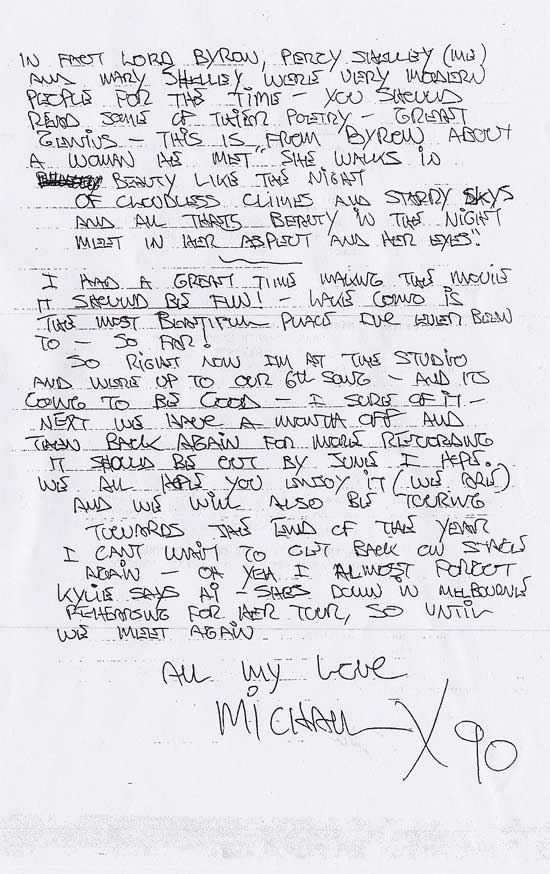 IN FACT LORD BYRON, PERCY SHELLEY (ME)
AND MARY SHELLEY WERE VERY MODERN
PEOPLE FOR THE TIME – YOU SHOULD
READ SOME OF THIER POETRY – GREAT
GENIUS – THIS IS FROM BYRON ABOUT
A WOMAN HE MET "SHE WALKS IN
BEAUTY LIKE THE NIGHT
OF CLOUDLESS CLIMES AND STARRY SKYS
AND ALL THATS BEAUTY IN THE NIGHT
MEET IN HER ASPECT AND HER EYES".
I HAD A GREAT TIME MAKING THE MOVIE
IT SHOULD BE FUN! – LAKE COMO IS
THE MOST BEAUTIFUL PLACE IVE EVER BEEN
TO – SO FAR!
SO RIGHT NOW IM AT THE STUDIO
AND WERE UP TO OUR 6th SONG – AND ITS
GOING TO BE GOOD – I SURE OF IT –
NEXT WE HAVE A MONTH OFF AND
THEN BACK AGAIN FOR MORE RECORDING
IT SHOULD BE OUT BY JUNE I HOPE.
WE ALL HOPE YOU ENJOY IT (WE ARE!)
AND WE WILL ALSO BE TOURING
TOWARDS THE END OF THE YEAR
I CANT WAIT TO GET BACK ON STAGE
AGAIN – OH YEH I ALMOST FORGOT
KYLIE SAYS HI – SHES DOWN IN MELBOURNE
REHEARSING FOR HER TOUR, SO UNTIL
WE MEET AGAIN
ALL MY LOVE
MICHAEL X 90